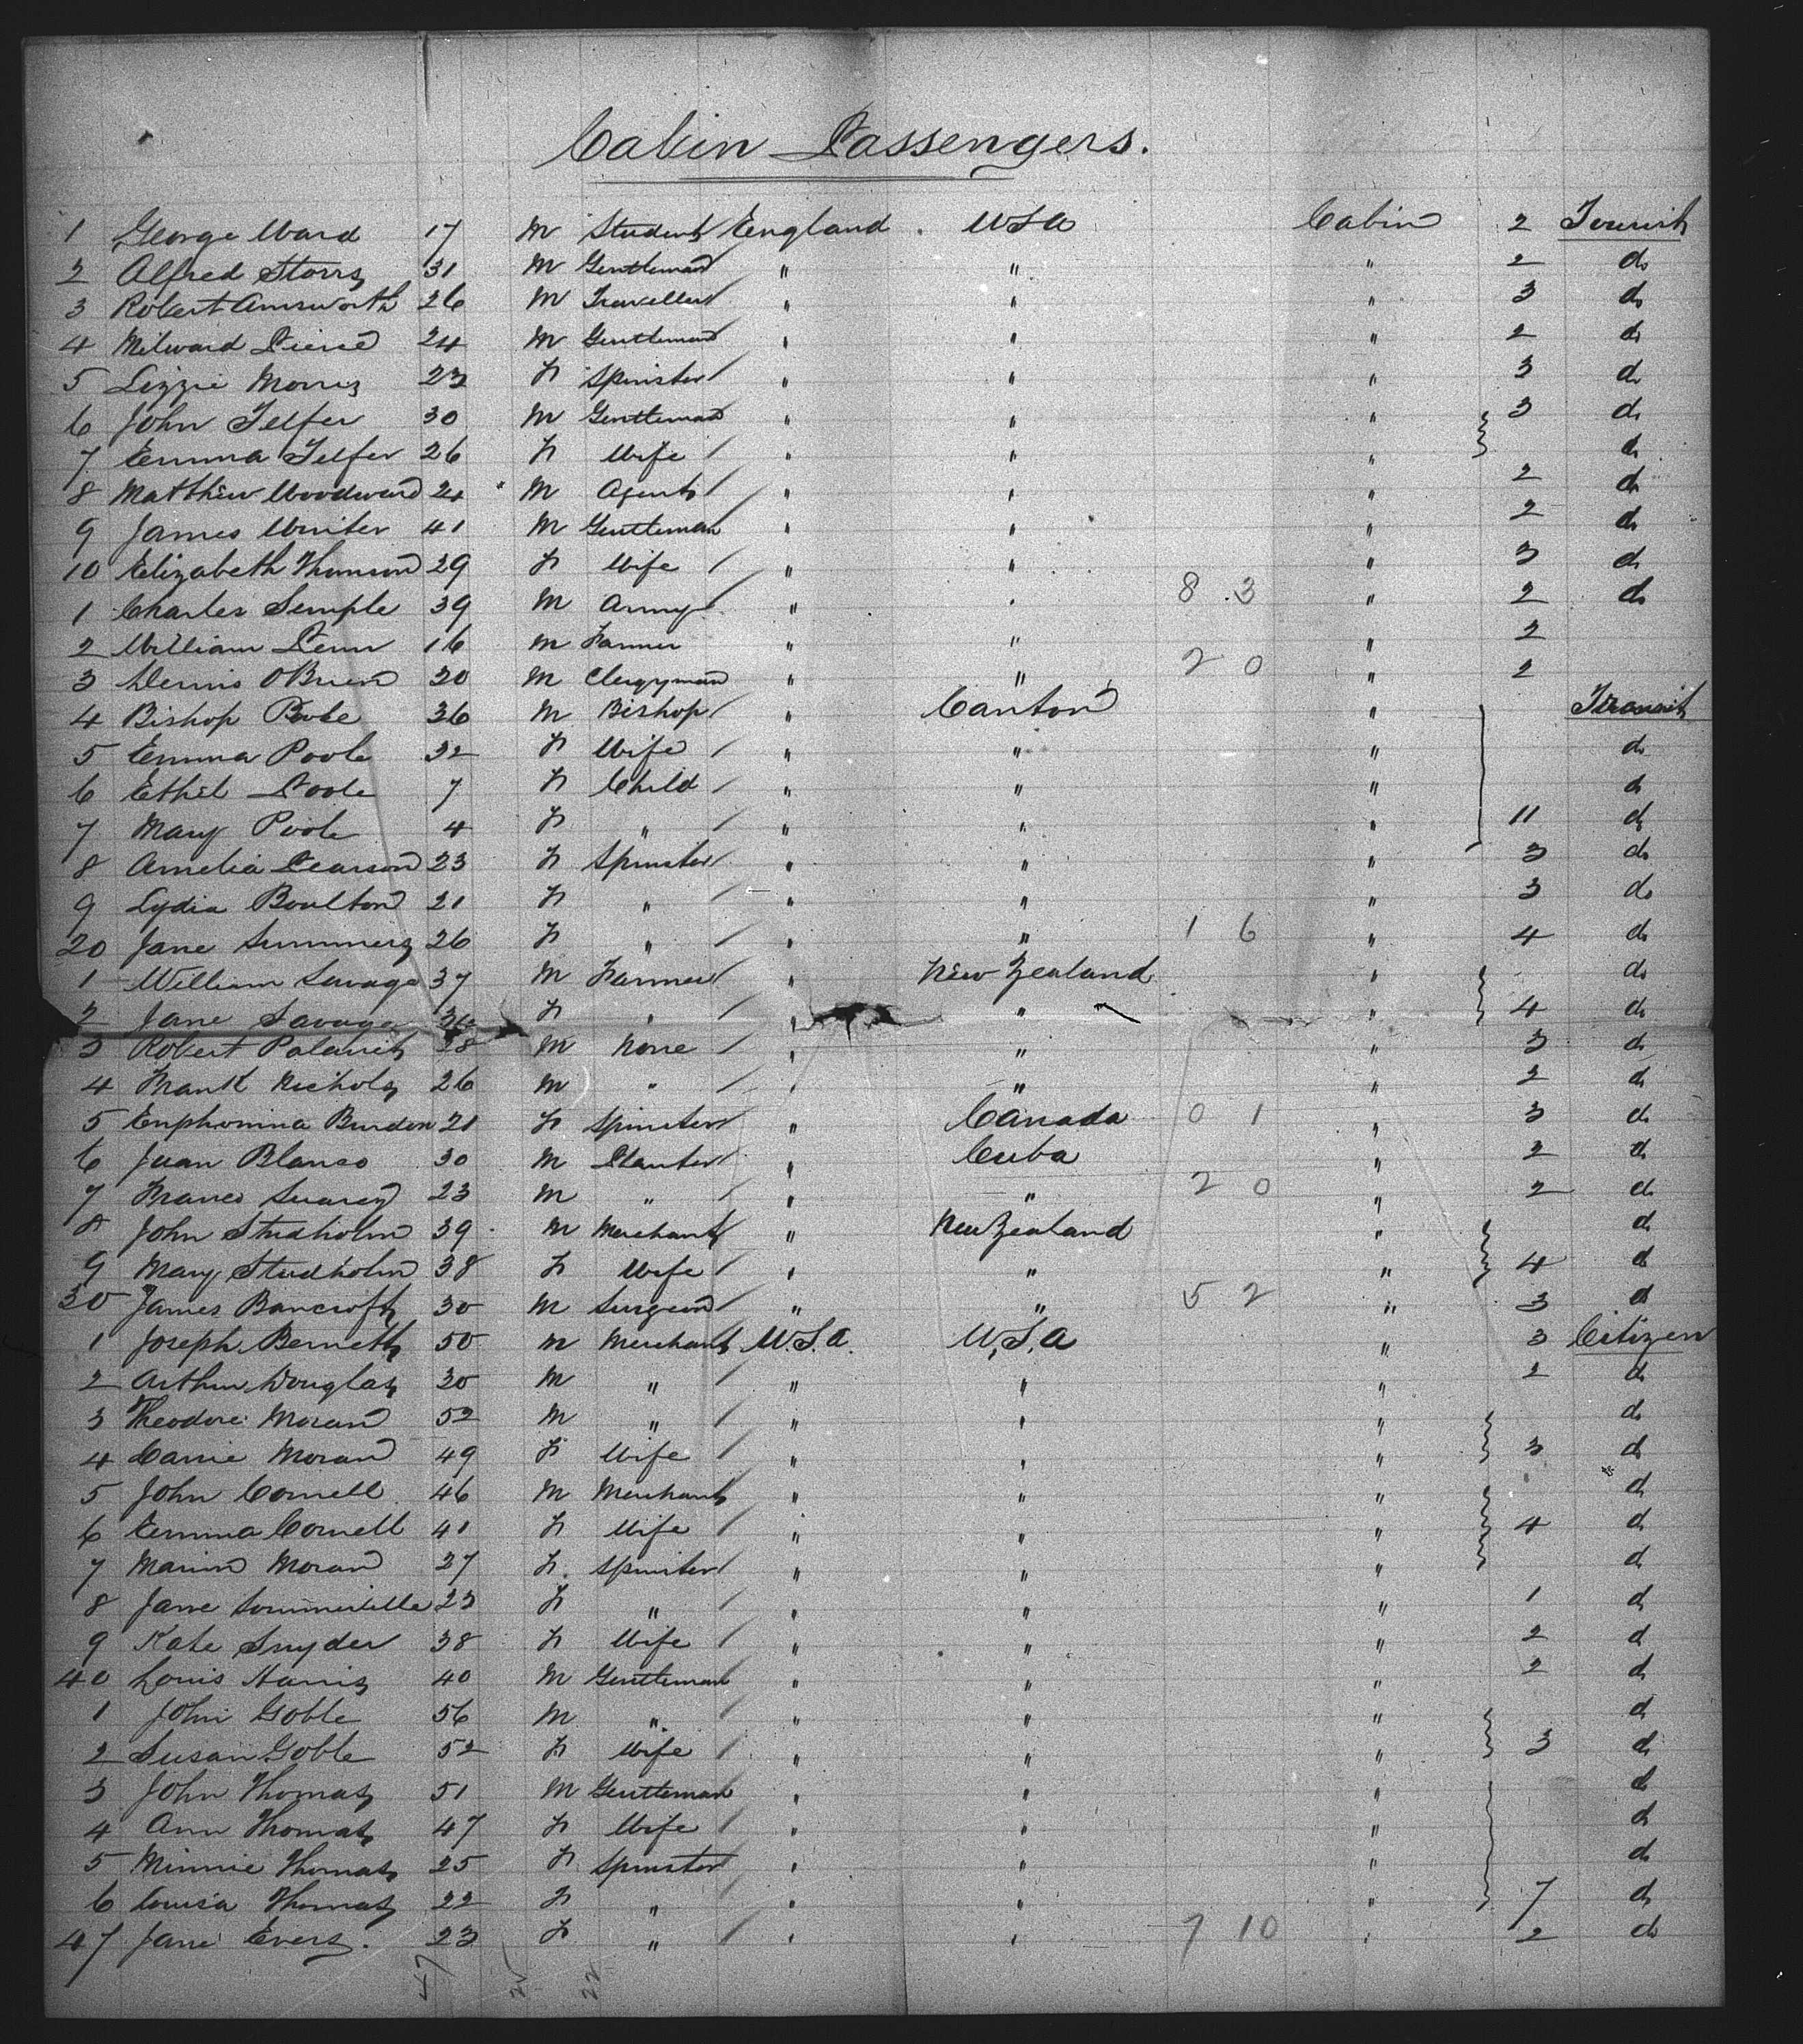 Cabin Passengers.
1 George Ward 17 M Student England . USA Cabin 2 Tourist
2 Alfred Storrs 31 M Gentleman " " " 2 do
3 Robert Ainsworth 26 M Traveller " " " 3 do
4 Milward Pierce 24 M Gentleman " " " 2 do
5 Lizzie Morris 23 F Spinster " " " 3 do
6 John Telfer 30 M Gentleman " " " 3 do
7 Emma Telfer 26 F Wife " " " do
8 Matthew Woodward 24 M Agent " " " 2 do
9 James Winter 41 M Gentleman " " " 2 do
10 Elizabeth Thomson 29 F Wife " " " 3 do
1 Charles Semple 39 M Army " " 8 3 " 2 do
2 William Penn 16 M Farmer " " " 2
3 Dennis OBrien 30 M Clergyman " " 2 0 " 2
4 Bishop Poole 36 M Bishop " Canton " Transit
5 Emma Poole 32 F Wife " " " do
6 Ethel Poole 7 F Child " " " do
7 Mary Poole 4 F " " " " 11 do
8 Amelia Pearson 23 F Spinster " " " 3 do
9 Lydia Boulton 21 F " " " " 3 do
20 Jane Summers 26 F " " " 1 6 " 4 do
1 William Savage 37 M Farmer " New Zealand " do
2 Jane Savage F " " " " 4 do
3 Robert 28 M None " " " 3 do
4 Frank Nichols 26 M " " " " 2 do
5 Euphomina Burdon 21 F Spinster " Canada 0 1 " 3 do
6 Juan Blanco 30 M Planter " Cuba " 2 do
7 Franco Suarez 23 M " " " 2 0 " 2 do
8 John Studholm 39 M Merchant " New Zealand " do
9 Mary Studholm 38 F Wife " " " 4 do
30 James Bancroft 30 M Surgeon " " 5 2 " 3 do
1 Joseph Berneth 50 M Merchant U.S.A. U.S.A " 3 Citizen
2 Arthur Douglas 30 M " " " " 2 do
3 Theodore Moran 52 M " " " " do
4 Carrie Moran 49 F Wife " " " 3 do
5 John Cornell 46 M Merchant " " " do
6 Emma Cornell 41 F Wife " " " 4 do
7 Marion Moran 27 F. Spinster " " " do
8 Jane Sommerville 23 F " " " " 1 do
9 Kate Snyder 38 F Wife " " " 2 do
40 Louis Harris 40 M Gentleman " " " 2 do
1 John Goble 56 M " " " " do
2 Susan Goble 52 F Wife " " " 3 do
3 John Thomas 51 M Gentleman " " " do
4 Ann Thomas 47 F Wife " " " do
5 Minnie Thomas 25 F Spinster " " " do
6 Louisa Thomas 22 F " " " " 7 do
47 Jane Evers. 23 F " " " 7 10 " 2 do
47 25 22